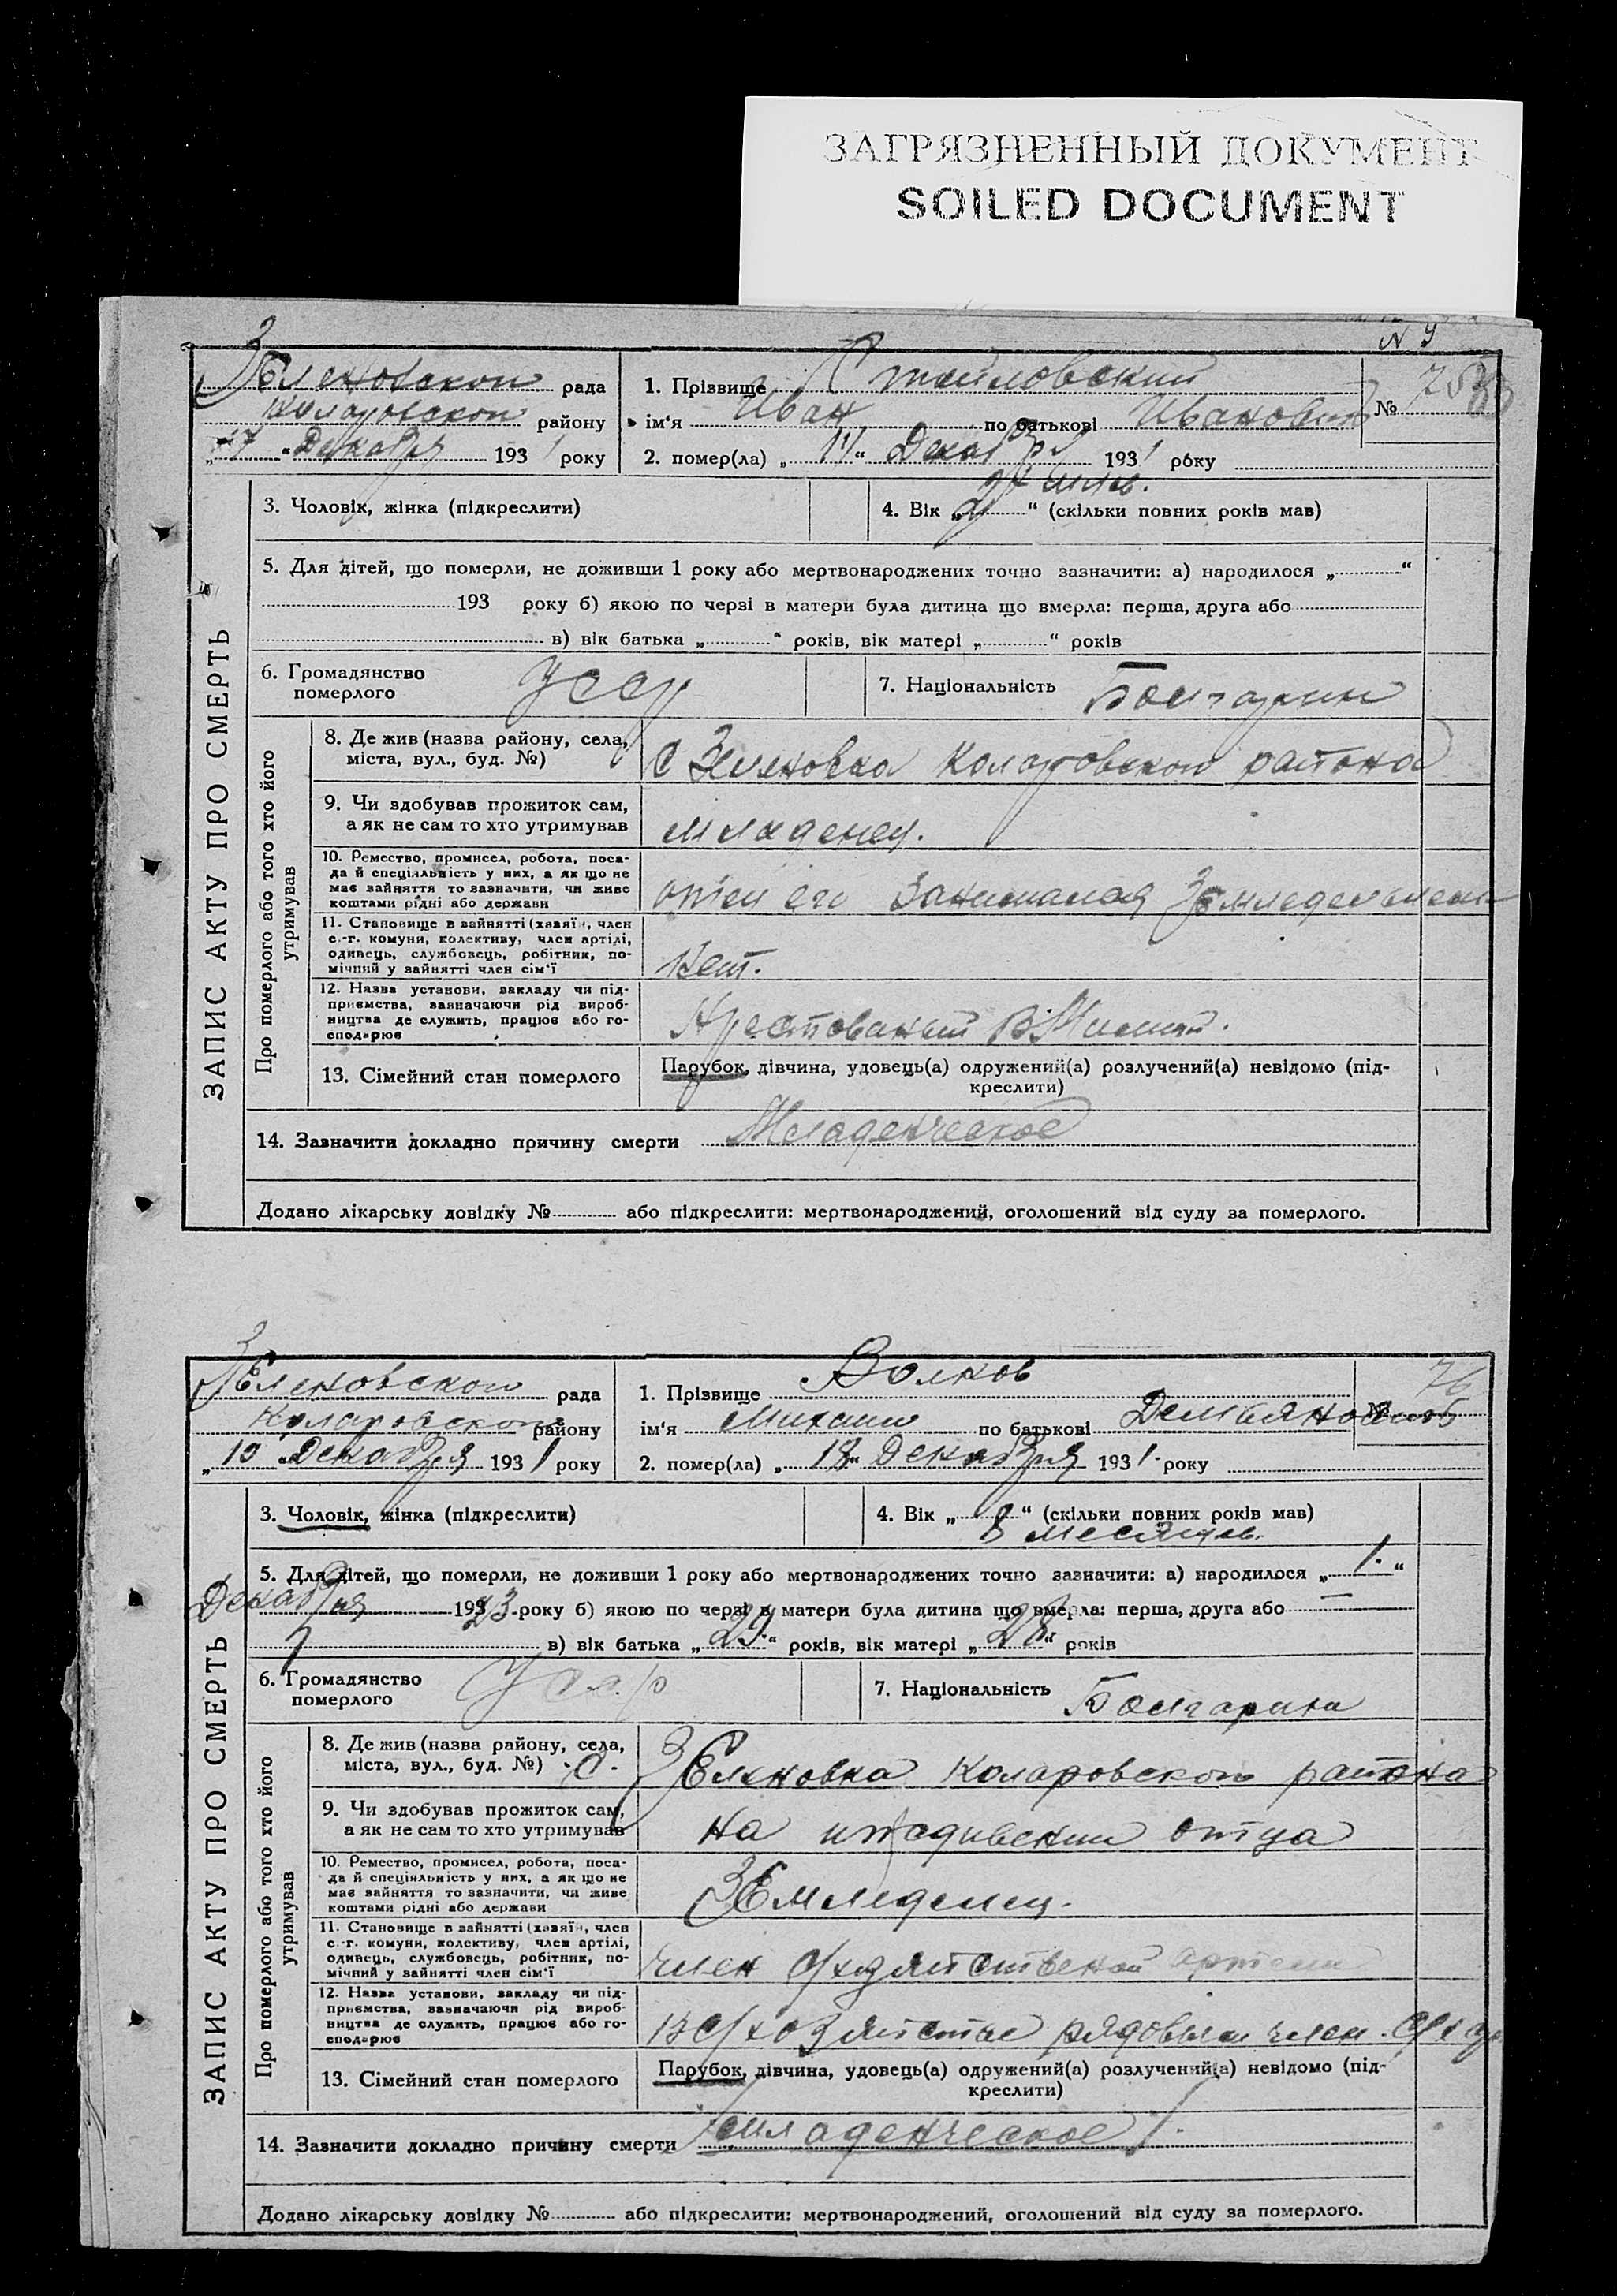 ЗАГРЯЗНЕННЫЙ ДОКУМЕНТ
SOILED DOCUMENT
Зеленовской рада
Коларовской району
17 " Декабря 1931 року
1. Прізвище Стоиловский
ім'я Иван по батькові Иванович
№ 75
2. помер(ла) „ " Декабря 1931 року
3. Чоловік, жінка (підкреслити)
4. Вік „ " (скільки повних років мав)
5. Для дітей, що померли, не доживши 1 року або мертвонароджених точно зазначити: а) народилося „ "
193 року б) якою по черзі в матери була дитина що вмерла: перша, друга або
в) вік батька „ " років, вік матері „ " років
6. Громадянство померлого УССР
7. Національність Болгарин
ЗАПИС АКТУ ПРО СМЕРТЬ
Про померлого або того хто його утримував
8. Де жив (назва району, села, міста, вул., буд. №) с Зеляновка Коларовского района
9. Чи здобував прожиток сам, а як не сам то хто утримував младенец.
10. Ремество, промисел, робота, посада й спеціяльність у них, а як що не має зайняття то зазначити, чи живе коштами рідні або держави отец его занимался Земледелием
11. Становище в зайнятті (хазяїн, член с.-г. комуни, колективу, член артілі, одинець, службовець, робітник, помічний у зайнятті член сім'ї Нет.
12. Назва установи, закладу чи підприємства, зазначаючи рід виробництва де служить, працює або господарює Арестованый
13. Сімейний стан померлого Парубок, дівчина, удовець(а) одружений(а) розлучений(а) невідомо (підкреслити)
14. Зазначити докладно причину смерти Младенческое
Додано лікарську довідку № або підкреслити: мертвонароджений, оголошений від суду за померлого.
Зеленовской рада
Коларовского району
„ " Декабря 1931 року
1. Прізвище Волков
ім'я Михаил по батькові Демьянович
№ 76
2. помер(ла) „18" Декабря 1931 року
3. Чоловік, жінка (підкреслити)
4. Вік „ " (скільки повних років мав)
8 месяцев.
5. Для дітей, що померли, не доживши 1 року або мертвонароджених точно зазначити: а) народилося „1."
Декабря 193 року б) якою по черзі в матери була дитина що вмерла: перша, друга або
в) вік батька „29" років, вік матері „28" років
6. Громадянство померлого УССР
7. Національність Болгарин
ЗАПИС АКТУ ПРО СМЕРТЬ
Про померлого або того хто його утримував
8. Де жив (назва району, села, міста, вул., буд. №) с. Зеляновка Коларовского района
9. Чи здобував прожиток сам, а як не сам то хто утримував на иждивении отца
10. Ремество, промисел, робота, посада й спеціяльність у них, а як що не має зайняття то зазначити, чи живе коштами рідні або держави Земледелец.
11. Становище в зайнятті (хазяїн, член с.-г. комуни, колективу, член артілі, одинець, службовець, робітник, помічний у зайнятті член сім'ї член с/хозяйственой артели
12. Назва установи, закладу чи підприємства, зазначаючи рід виробництва де служить, працює або господарює В с/хозяйстве рядовым член.
13. Сімейний стан померлого Парубок, дівчина, удовець(а) одружений(а) розлучений(а) невідомо (підкреслити)
14. Зазначити докладно причину смерти младенческое
Додано лікарську довідку № або підкреслити: мертвонароджений, оголошений від суду за померлого.